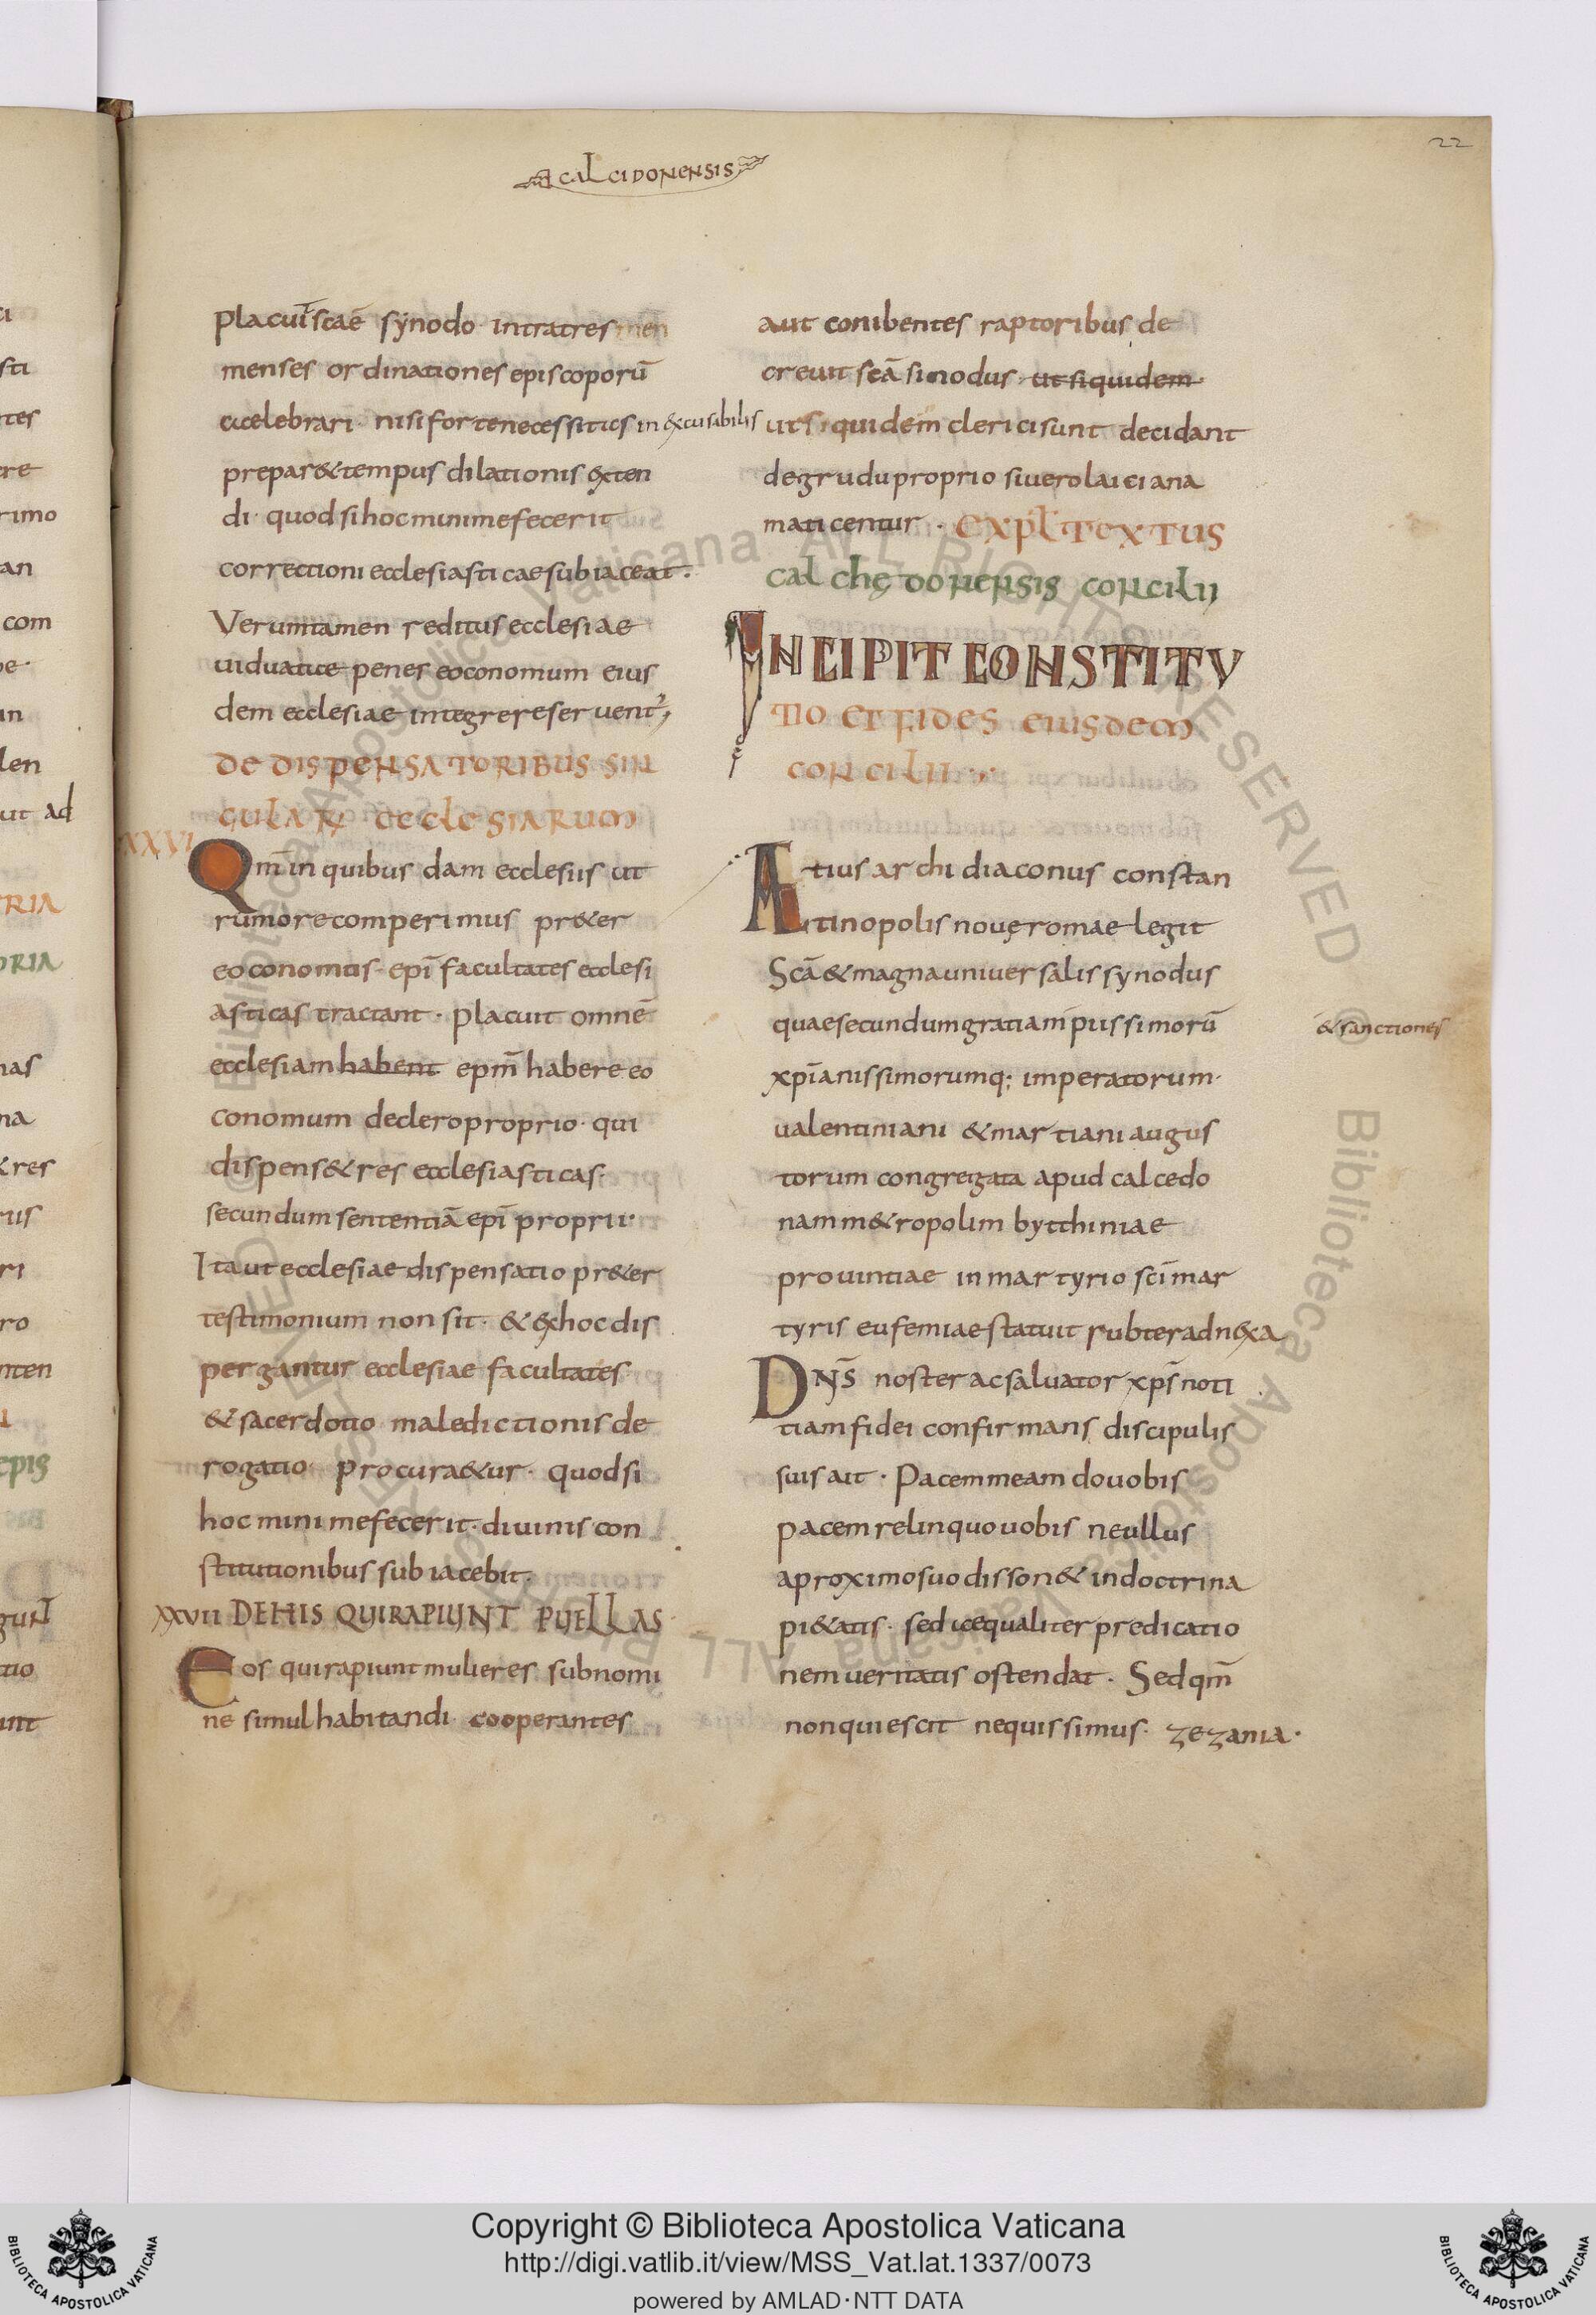 22
calcidonensis
placuit scae synodo intra tres men
menses ordinationes episcoporū
celebrari · nisi forte necessitas inexcusabilis
prepar&tempus dilationis exten
di · quod si hoc minime fecerit
correctioni ecclesiasticae subiaceat ·
Verumtamen reditus ecclesiae
uiduatae penes eoconomum eius
dem ecclesiae integre reseruent
DE DISPENSATORIBUS SIN
GULAR ECCLESIARUM
XXVI
Qm̄ in quibusdam ecclesiis ut
rumore comperimus pr&er
eoconomus · epī facultates ecclesi
asticas tractant · placuit omnē
ecclesiam habent epm̄ habere eo
conomum declero proprio · qui
dispens& res ecclesiasticas ·
secundum sententiā epī proprii ·
Ita ut ecclesiae dispensatio pr&er
testimonium non sit · & exhoc dis
pergantur ecclesiae facultates
& sacerdotio maledictionis de
rogatio · procura&ur · quod si
hoc minime fecerit · diuinis con
stitutionibus subiacebit ·
XXVII DE HIS QUI RAPIUNT PUELLAS ·
Eos qui rapiunt mulieres sub nomi
ne simul habitandi · cooperantes
aut conibentes raptoribus de
creuit scā sinodus · ut siquidem ·
ut siquidem clerici sunt decidant
degrudu proprio si uero laici ana
maticentur · EXPL TEXTUS
CALCHĘDONENSIS CONCILII
INCIPIT CONSTITU
TIO ET FIDES EIUSDEM
CONCILII
Aetius archidiaconus constan
tinopolis nouę romae legit
Scā & magna uniuersalis synodus
quae secundum gratiam piissimorū
& sanctiones
xpīanissimorumq; imperatorum ·
ualentiniani & martiani augus
torum congregata apud calcedo
nam m&ropolim bytthiniae
prouintiae in martyrio scī mar
tyris eufemiae statuit subter adnexa
DN̄S noster ac saluator xps̄ noti
tiam fidei confirmans discipulis
suis ait · Pacem meam do uobis
pacem relinquo uobis ne ullus
a proximo suo disson& in doctrina
pi&atis · sed aequaliter predicatio
nem ueritatis ostendat · Sed qm̄
non quiescit nequissimus · zezania ·
Copyright © Biblioteca Apostolica Vaticana
http://digi.vatlib.it/view/MSS_Vat.lat.1337/0073
powered by AMLAD·NTT DATA